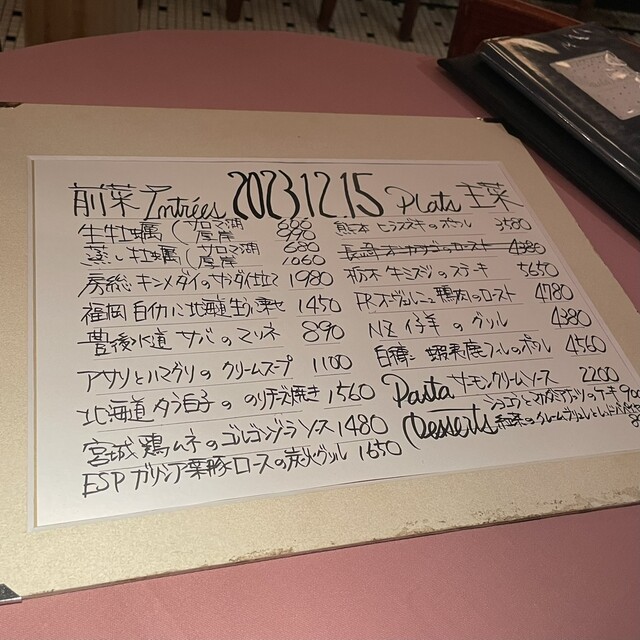 前菜 Entrées 2023.12.15 Plats 主菜
生牡蠣 (サロマ湖 880
厚岸 990
蒸し牡蠣 (サロマ湖 680
厚岸 1060
房総 キンメダイのサラダ仕立て 1980
福岡 白イカに北海道生うに乗せ 1450
豊後水道 サバのマリネ 890
アサリとハマグリの クリームスープ 1100
北海道 タラ白子の のりチーズ焼き 1560
宮城 鶏ムネのゴルゴンゾーラソース 1480
ESP ガリシア栗豚ロースの炭火グリル 1650
熊本 ヒラスズキのポワレ 3580
長崎 のロースト 4380
栃木 牛ミスジのステーキ 5650
FR 鴨肉のロースト 4780
NZ 仔羊のグリル 4380
蝦夷鹿 のポワレ 4560
Pasta サーモンクリームソース 2200
Desserts ショコラと のケーキ 900
紅茶のクレームブリュレ